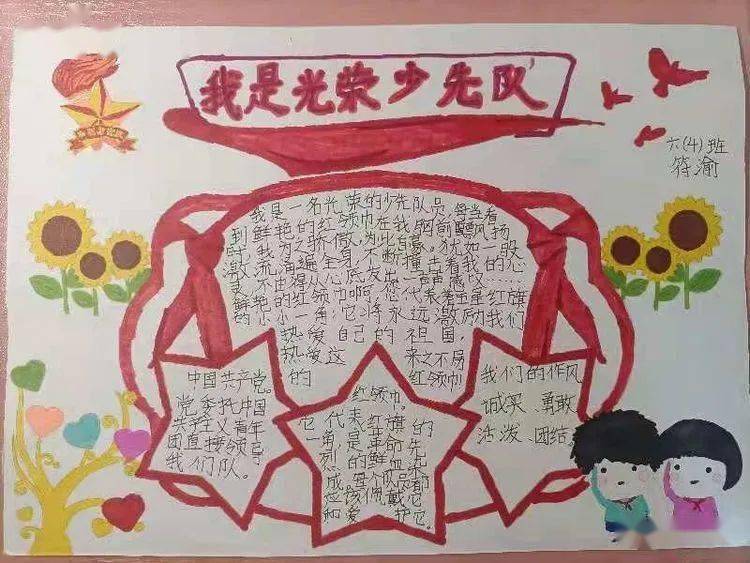 我是光荣少先队
六(4)班
符渝
我是一名光荣的少先队员,每当看
到鲜艳的红领巾在我胸前飘扬
时,我为之骄傲,为此自豪。犹如一股
激流涌遍全身,不断撞击着我的心
灵,不由得从心底发出一声感叹……
鲜艳的红领巾啊!您代表着革命红旗
的小小一角,它将永远激励我们
热爱自己的祖国,
热爱这来之不易
的红领巾
中国共产党。
党委托中国
共产主义青年
团直接领导
我们队。
红领巾。
它代表红旗的
一角,是革命先
烈的鲜血染
成的,每个队员都
应该佩戴它
和爱护它。
我们的作风
诚实、勇敢
活泼、团结